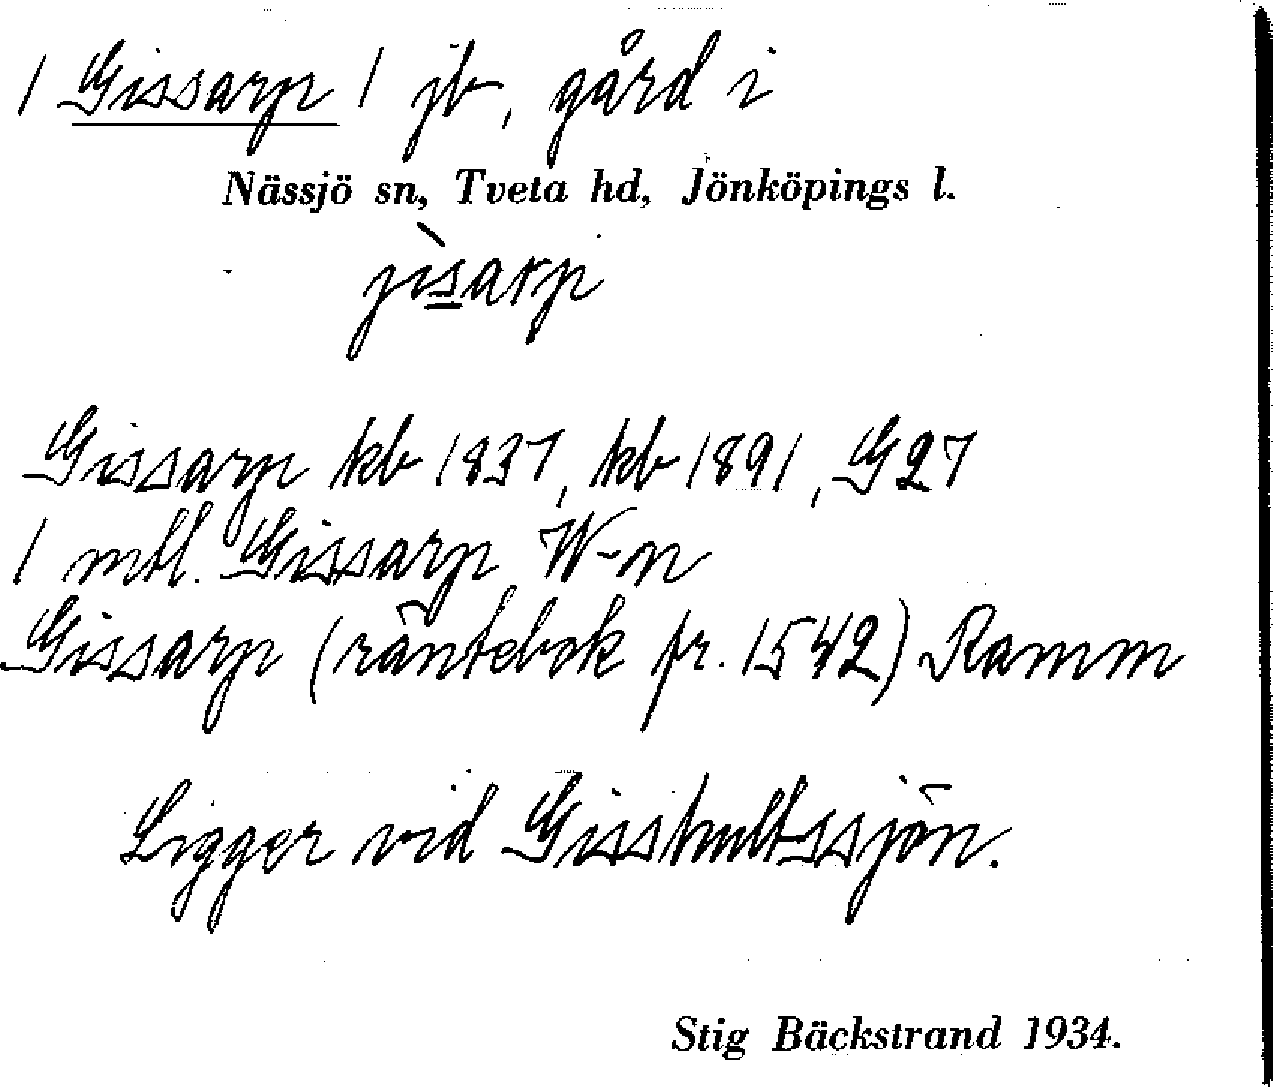 / Gissarp / jb, gård i
Nässjö sn, Tveta hd, Jönköpings l.
jìsarp
Gissarp kb 1837, kb 1891, G27
1 mtl. Gissarp W-n
Gissarp (räntebok fr. 1542) Ramm
Ligger vid Gisshultssjön.
Stig Bäckstrand 1934.